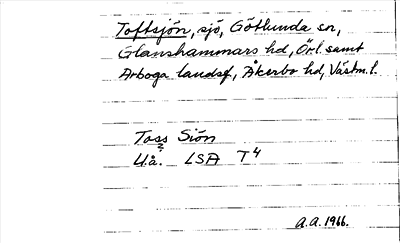 Toftsjön, sjö, Götlunda sn,
Glanshammars hd, Örl. samt
Arboga landsf., Åkerbo hd, Västm. l.
Toss Siön
U.å. LSA T4
A.A. 1966.